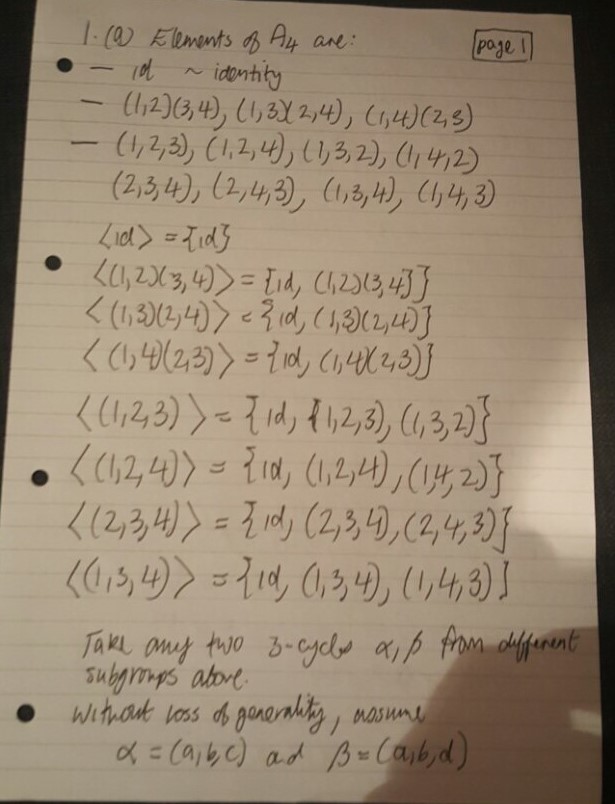 1. (a) Elements of A4 are:
page 1
— id ~ identity
— (1,2)(3,4), (1,3)(2,4), (1,4)(2,3)
— (1,2,3), (1,2,4), (1,3,2), (1,4,2)
(2,3,4), (2,4,3), (1,3,4), (1,4,3)
<id> = {id}
<(1,2)(3,4)> = {id, (1,2)(3,4)}
<(1,3)(2,4)> = {id, (1,3)(2,4)}
<(1,4)(2,3)> = {id, (1,4)(2,3)}
<(1,2,3)> = {id, (1,2,3), (1,3,2)}
<(1,2,4)> = {id, (1,2,4), (1,4,2)}
<(2,3,4)> = {id, (2,3,4), (2,4,3)}
<(1,3,4)> = {id, (1,3,4), (1,4,3)}
Take any two 3-cycles α, β from different
subgroups above.
Without loss of generality, assume
α = (a,b,c) and β = (a,b,d)